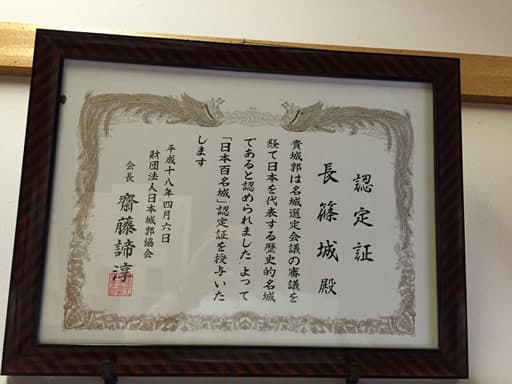 認定証
長篠城殿
貴城郭は名城選定会議の審議を
経て日本を代表する歴史的名城
であると認められました よって
「日本百名城」認定証を授与いた
します
平成十八年四月六日
財団法人日本城郭協会
会長 齋藤諦淳